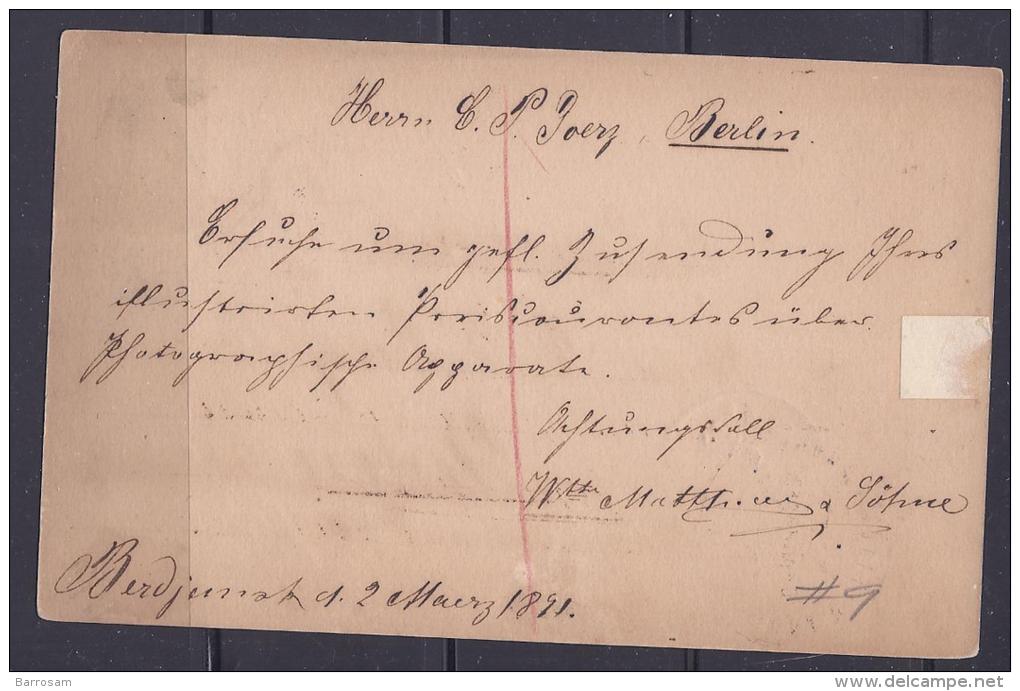 Herrn C. P. Goerz, Berlin.
Ersuche um gefl. Zusendung Ihres
illustrirten Preiscourantes über
Photographische Apparate.
Achtungsvoll
Söhne
Berdjansk d. 2 Maerz 1891.
#9
Barrosam
www.delcampe.net